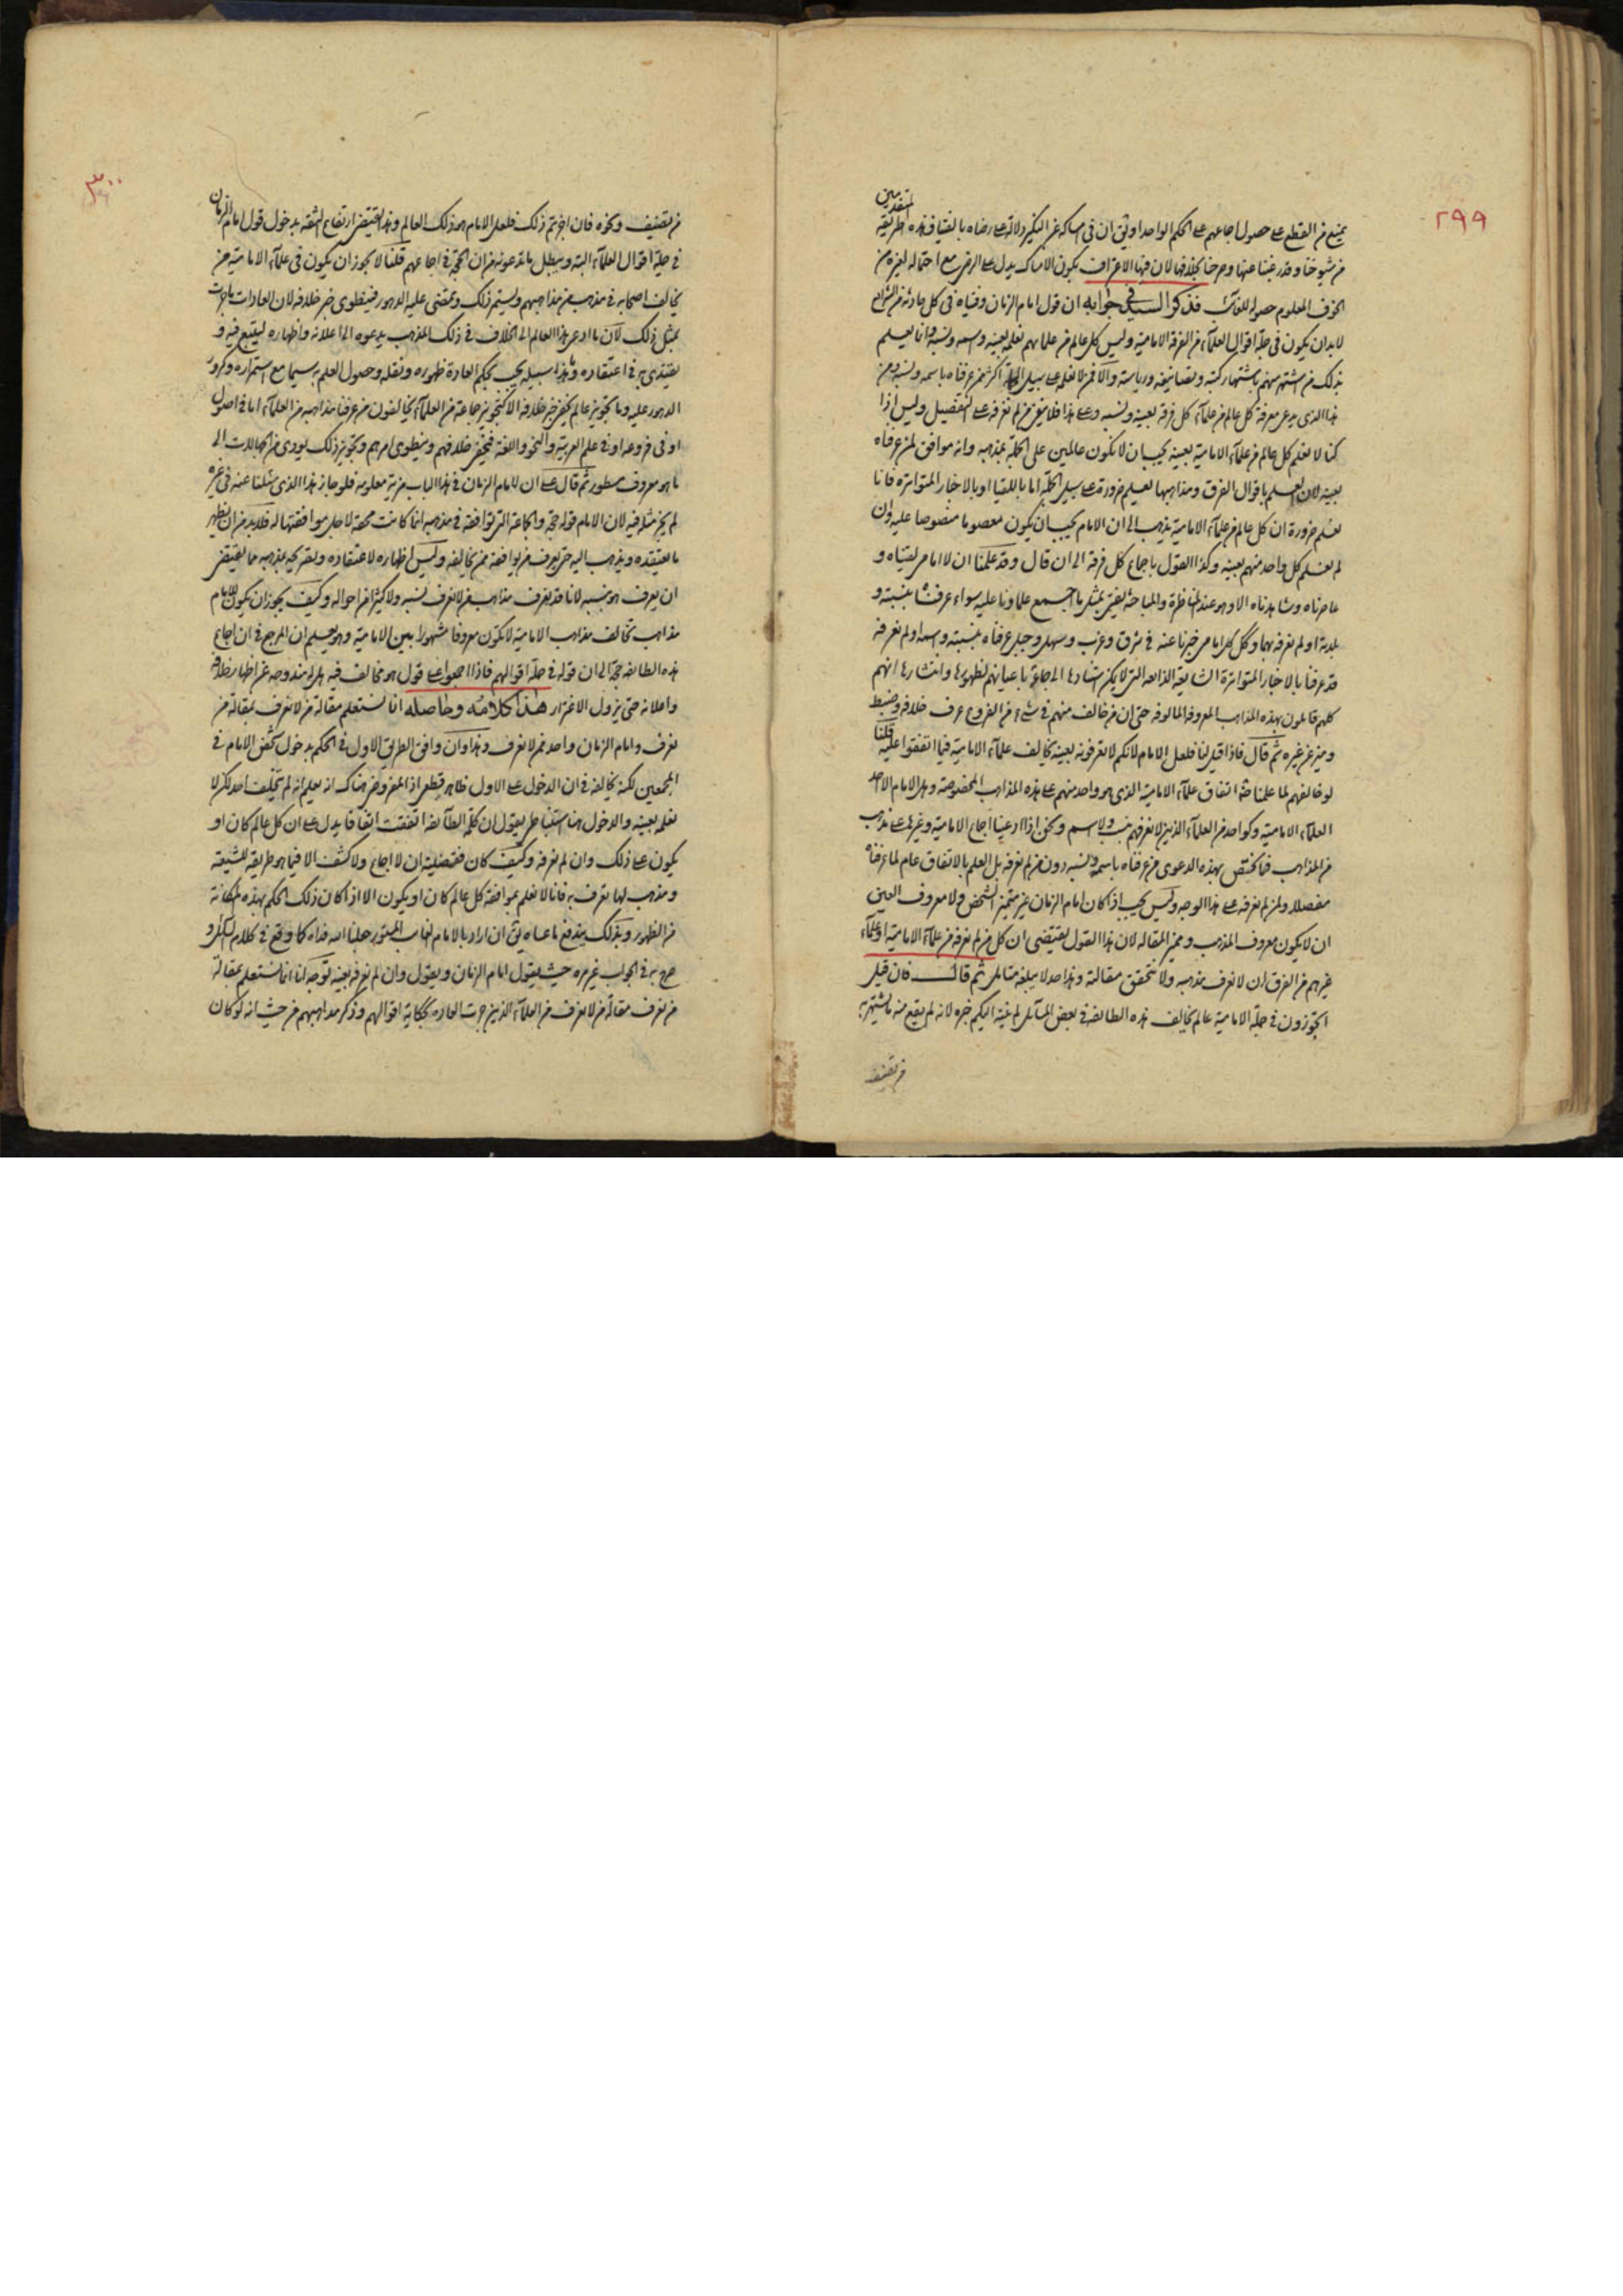 ٢٩٩
المتقدمين
يمنع من القطع على حصول اجماعهم على الحكم الواحد او يق ان في امساكه عن النكير دلالة على رضاه بالفتيا فهذه طريقة
من شيوخنا وقد رغبنا عنها وصرحنا بخلافها لان فيها الاعتراف بكون الامساك يدل على الرضى مع احتماله لغيره من
الخوف المعلوم حصوله للغائب فذكر السيد في جوابه ان قول امام الزمان وفتياه في كل حادثة من الشرائع
لابد ان يكون في جملة اقوال العلماء من الفرقة الامامية وليس كل عالم من علمائهم نعلمه بعينه واسمه ونسبه وانما نعلم
بذلك من اشتهر منهم باشتهار كتبه وتصانيفه ورياسته والا فمن لا نعلمه على سبيل الجملة اكثر ممن عرفناه باسمه ونسبه ومن
هذا الذي يدعي معرفة كل عالم من علماء كل فرقة بعينه ونسبه وعلى هذا فلا يتعين من لم نعرفه على التفصيل وليس اذا
كنا لا نعلم كل عالم من علماء الامامية بعينه يجب ان لا نكون عالمين على الجملة بمذهبه وانه موافق لمن عرفناه
بعينه لان العلم باقوال الفرق ومذاهبها نعلم ضرورة على سبيل الجملة اما باللقيا او بالاخبار المتواترة فانا
نعلم ضرورة ان كل عالم من علماء الامامية يذهب الى ان الامام يجب ان يكون معصوما منصوصا عليه وان
لم نعلم كل واحد منهم بعينه وكذا القول باجماع كل فرقة الى ان قال وقد علمنا ان لا امامي لقيناه و
عاصرناه وشاهدناه الا وهو عند المناظرة والمباحثة يفتي بمثل ما اجمع علماؤنا عليه سواء عرفناه بنسبته و
بلدته او لم نعرفه بهما وكل امامي خبرنا عنه في شرق وغرب وسهل وجبل عرفناه بنسبته واسمه او لم نعرفه
قد عرفنا بالاخبار المتواترة الشايعة الذايعة التي لا يمكن اسنادها الى جماعة باعيانهم لظهورها وانتشارها انهم
كلهم قايلون بهذه المذاهب المعروفة المالوفة حتى ان من خالف منهم في شيء من الفروع عرف خلافه وضبط
وميز عن غيره ثم قال فاذا قيل لنا فلعل الامام لانكم لا تعرفونه بعينه يخالف علماء الامامية فيما اتفقوا عليه قلنا
لو خالفهم لما علمنا اتفاق علماء الامامية الذي هو واحد منهم على هذه المذاهب المخصوصة وهل الامام الا احد
العلماء الامامية وكواحد من العلماء الذين لا نعرفهم بنسب ولا اسم ونحن اذا ادعينا اجماع الامامية وغيرها على مذهب
من المذاهب فما نختص بهذه الدعوى من عرفناه باسمه ونسبه دون من لم نعرفه بل العلم بالاتفاق عام لما عرفناه
مفصلا ولمن لم نعرفه على هذا الوجه وليس يجب اذا كان امام الزمان غير متميز الشخص ولا معروف العين
ان لا يكون معروف المذهب ومميز المقالة لان هذا القول يقتضي ان كل من لم نعرفه من علماء الامامية او علماء
غيرهم من الفرق ان لا نعرف مذهبه ولا نتحقق مقالته وهذا حد لا يبلغه متامل ثم قال فان قيل
اتجوزون في جملة الامامية عالم يخالف هذه الطائفة في بعض المسائل لم ينته اليكم خبره لانه لم يقع منه ما يشتهر به
من تصنيف
٣٠٠
من تصنيف ونحوه فان اجزتم ذلك فلعل الامام هو ذلك العالم وهذا يقتضي ارتفاع الثقة بدخول قول امام الزمان
في جملة اقوال العلماء البتة ويبطل ما تدعونه من ان الحجة في اجماعهم قلنا لا يجوز ان يكون في علماء الامامية من
يخالف اصحابه في مذهب من مذاهبهم ويستمر ذلك ويمضى عليه الدهور فينطوي خبر خلافه لان العادات ما جرت
بمثل ذلك لان ما ادعى هذا العالم الى الخلاف في ذلك المذهب يدعوه الى اعلانه واظهاره ليتبع فيه و
يقتدى به في اعتقاده وما هذا سبيله يجب بحكم العادة ظهوره ونقله وحصول العلم به سيما مع استمراره وكرور
الدهور عليه وما تجويز عالم يخفى خبر خلافه الا كتجويز جماعة من العلماء يخالفون من عرفنا مذاهبه من العلماء اما في اصول
او في فروعه او في علم العربية والنحو واللغة فيخفى خلافهم وينطوي امرهم وتجويز ذلك يؤدي من الجهالات الى
ما هو معروف مسطور ثم قال على ان لامام الزمان في هذا الباب مزية معلومة فلو جاز هذا الذي سئلنا عنه في غيره
لم يجز مثله فيه لان الامام قوله حجة والجماعة التي توافقه في مذهبه انما كانت محقة لاجل موافقتها له فلابد من ان يظهر
ما يعتقده ويذهب اليه حتى يعرف من يوافقه ممن يخالفه وليس اظهاره لاعتقاده وتصريحه بمذهبه مما يقتضي
ان يعرف هو بنسبه لانا قد نعرف مذاهب من لا نعرف نسبه ولا كثيرا من احواله وكيف يجوز ان يكون للامام
مذاهب تخالف مذاهب الامامية لا تكون معروفا مشهورا بين الامامية وهو يعلم ان المرجع في ان اجماع
هذه الطائفة حجة الى ان قوله في جملة اقوالهم فاذا اجمعوا على قول هو مخالف فيه هل له مندوحة عن اظهار خلافه
واعلانه حتى يزول الاغترار هذا كلامه وحاصله انا نستعلم مقالة من لا نعرف بمقالة من
نعرف وامام الزمان واحد ممن لا نعرف وهذا وان وافق الطريق الاول في الحكم بدخول شخص الامام في
المجمعين لكنه يخالفه في ان الدخول على الاول ظاهر قطعي اذ المفروض هناك انه يعلم انه لم يتخلف احد لكن لا
نعلمه بعينه والدخول هنا استنباطي يقول ان كلمة الطائفة اتفقت اتفاقا يدل على ان كل عالم كان او
يكون على ذلك وان لم نعرفه وكيف كان فقضيته ان لا اجماع ولا كشف الا فيما هو طريقه للشيعة
ومذهب لها تعرف به فانا لا نعلم بموافقة كل عالم كان او يكون الا اذا كان ذلك الحكم بهذه المكانة
من الظهور وبذلك يندفع ما عساه يق ان اراد بالامام الغائب المستور جعلنا الله فداه كما وقع في كلام السائل و
صرح به في الجواب غير مرة حيث يقول امام الزمان ويقول وان لم نعرفه بعينه توجه لنا انا نستعلم بمقالة
من نعرف مقالة من لا نعرف من العلماء الذين جرت العادة بحكاية اقوالهم وذكر مذاهبهم من حيث انه لو كان